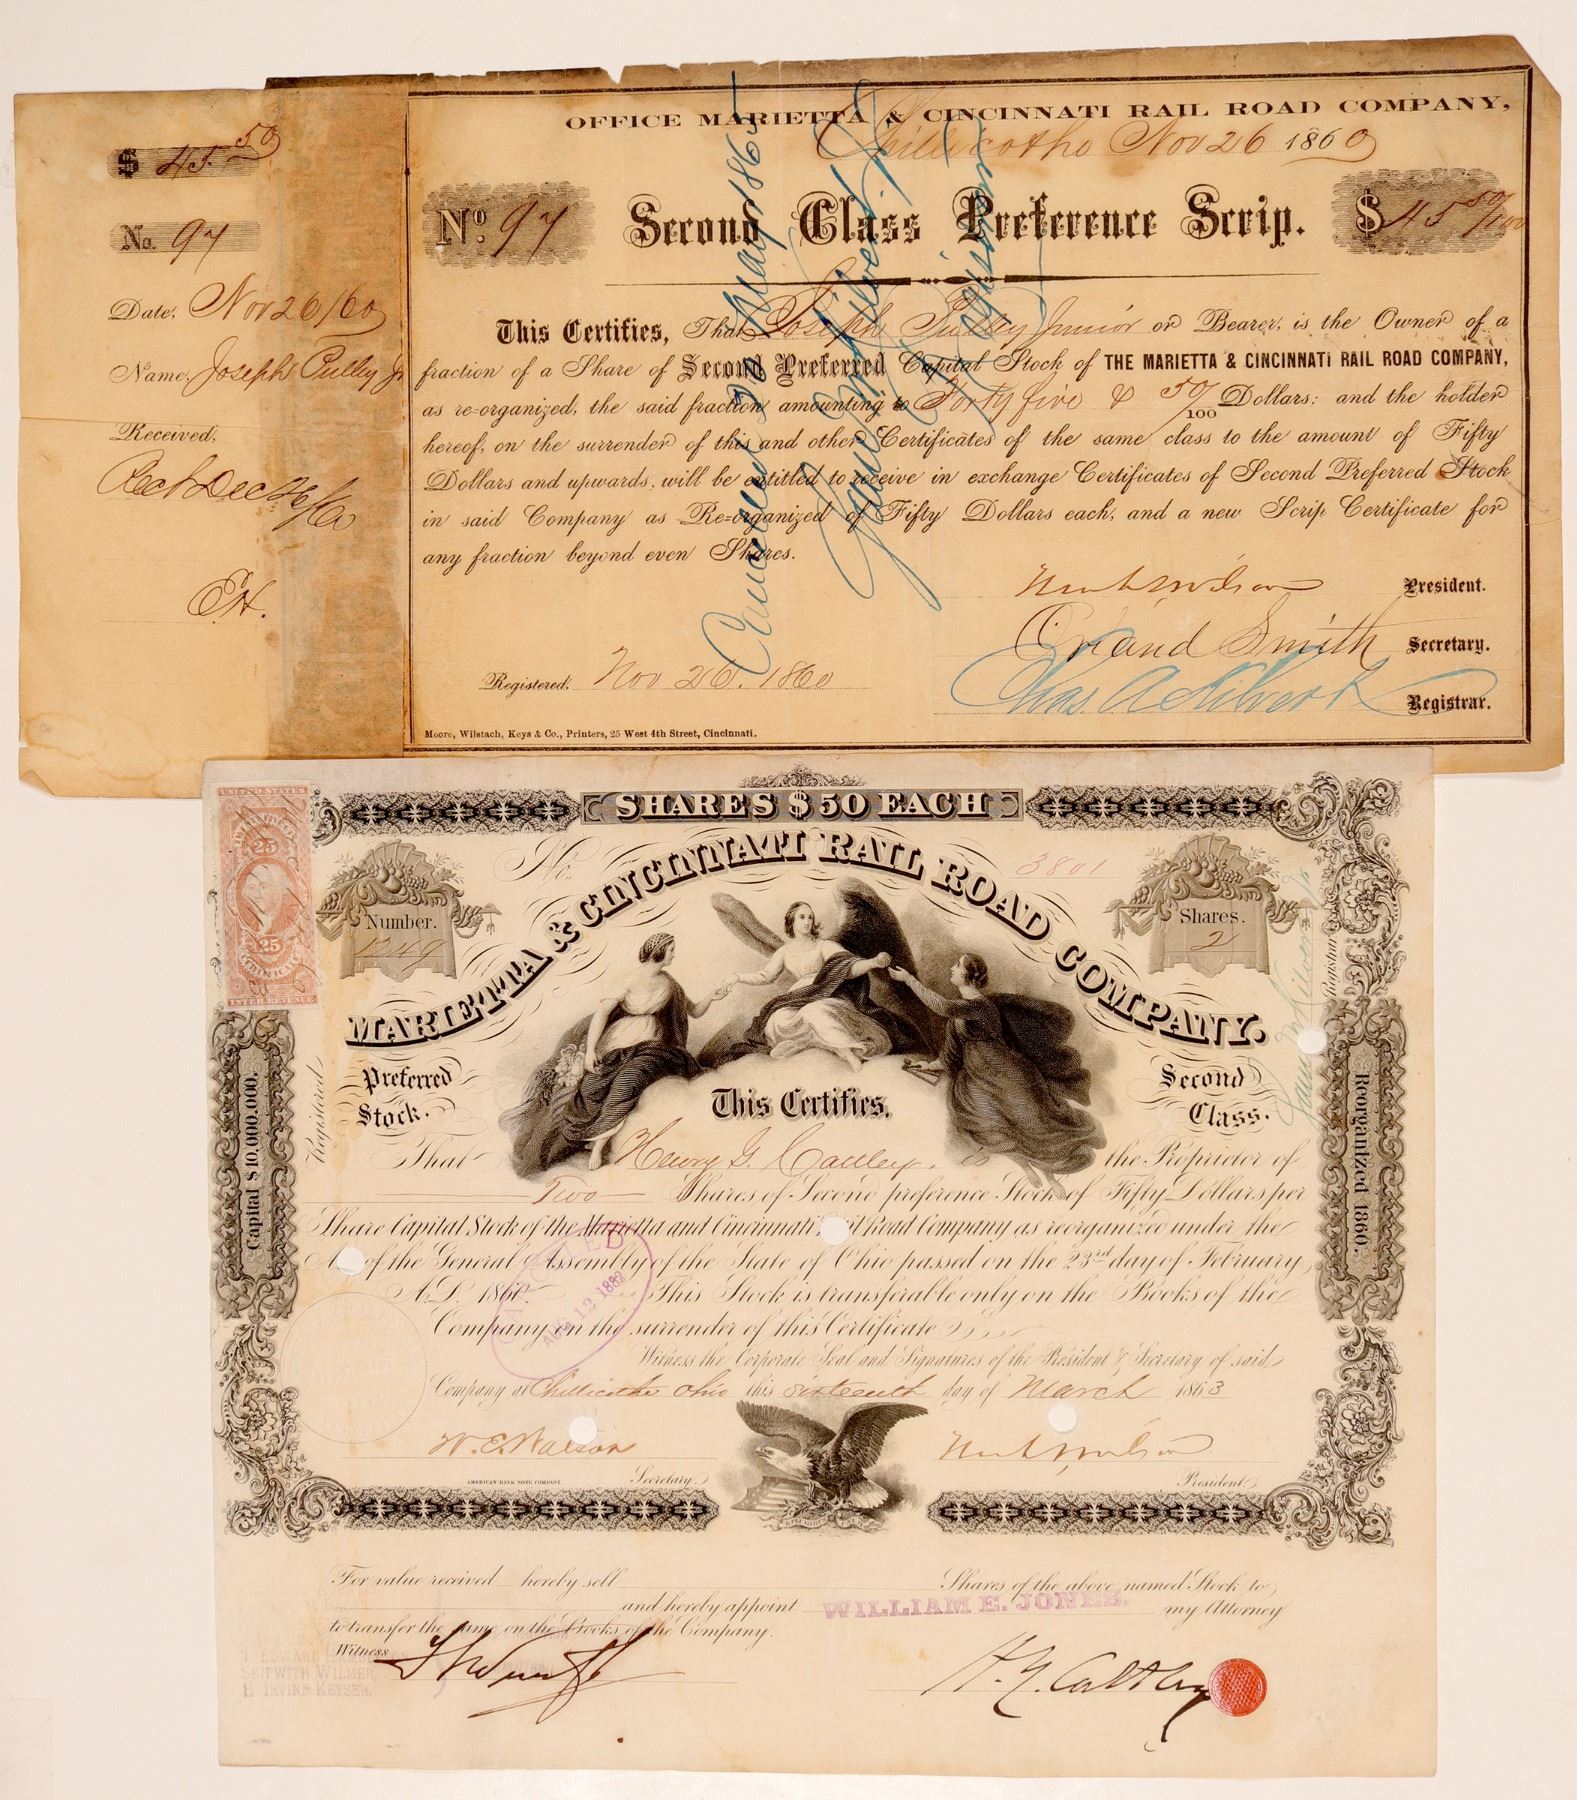 $ 45.50
No. 97
Date, Nov 26/60
Name, Joseph Pulley Jr
Received,
Rec'd Dec 26/60
OFFICE MARIETTA & CINCINNATI RAIL ROAD COMPANY,
Chillicothe Nov 26 1860
No. 97 Second Class Preference Scrip. $45 50/100
This Certifies, That Joseph Pulley Junior or Bearer, is the Owner of a
fraction of a Share of Second Preferred Capital Stock of THE MARIETTA & CINCINNATI RAIL ROAD COMPANY,
as re-organized, the said fraction amounting to Forty five & 50/100 Dollars; and the holder
hereof, on the surrender of this and other Certificates of the same class to the amount of Fifty
Dollars and upwards, will be entitled to receive in exchange Certificates of Second Preferred Stock
in said Company as Re=organized of Fifty Dollars each, and a new Scrip Certificate for
any fraction beyond even Shares.
President.
Orland Smith Secretary.
Registered, Nov 26. 1860
Chas. A Kilvert Registrar.
Moore, Wilstach, Keys & Co., Printers, 25 West 4th Street, Cincinnati.
Cancelled May 1865
UNITED STATES
25
25
INTER. REVENUE
SHARES $50 EACH
No. 3801
MARIETTA & CINCINNATI RAIL ROAD COMPANY.
Number.
1249
Shares.
2
Preferred
Stock.
Second
Class.
Capital $10,000,000.
Reorganized 1860.
Registered
Registrar
This Certifies,
That Henry G. is the Proprietor of
Two Shares of Second preference Stock of Fifty Dollars per
Share Capital Stock of the Marietta and Cincinnati Rail Road Company as reorganized under the
of the General Assembly of the State of Ohio passed on the 23rd day of February
A.D. 1860. This Stock is transferable only on the Books of the
Company on the surrender of this Certificate
CANCELLED
AUG 13 1882
Witness the Corporate Seal and Signatures of the President & Secretary of said
Company at Chillicothe Ohio this sixteenth day of March 1863
W. E. Watson
Secretary.
AMERICAN BANK NOTE COMPANY.
President
For value received hereby sell Shares of the above named Stock to
and hereby appoint WILLIAM E. JONES. my Attorney
to transfer the same on the Books of the Company.
Witness
SKIPWITH WILMER,
H. IRVINE KEYSER.